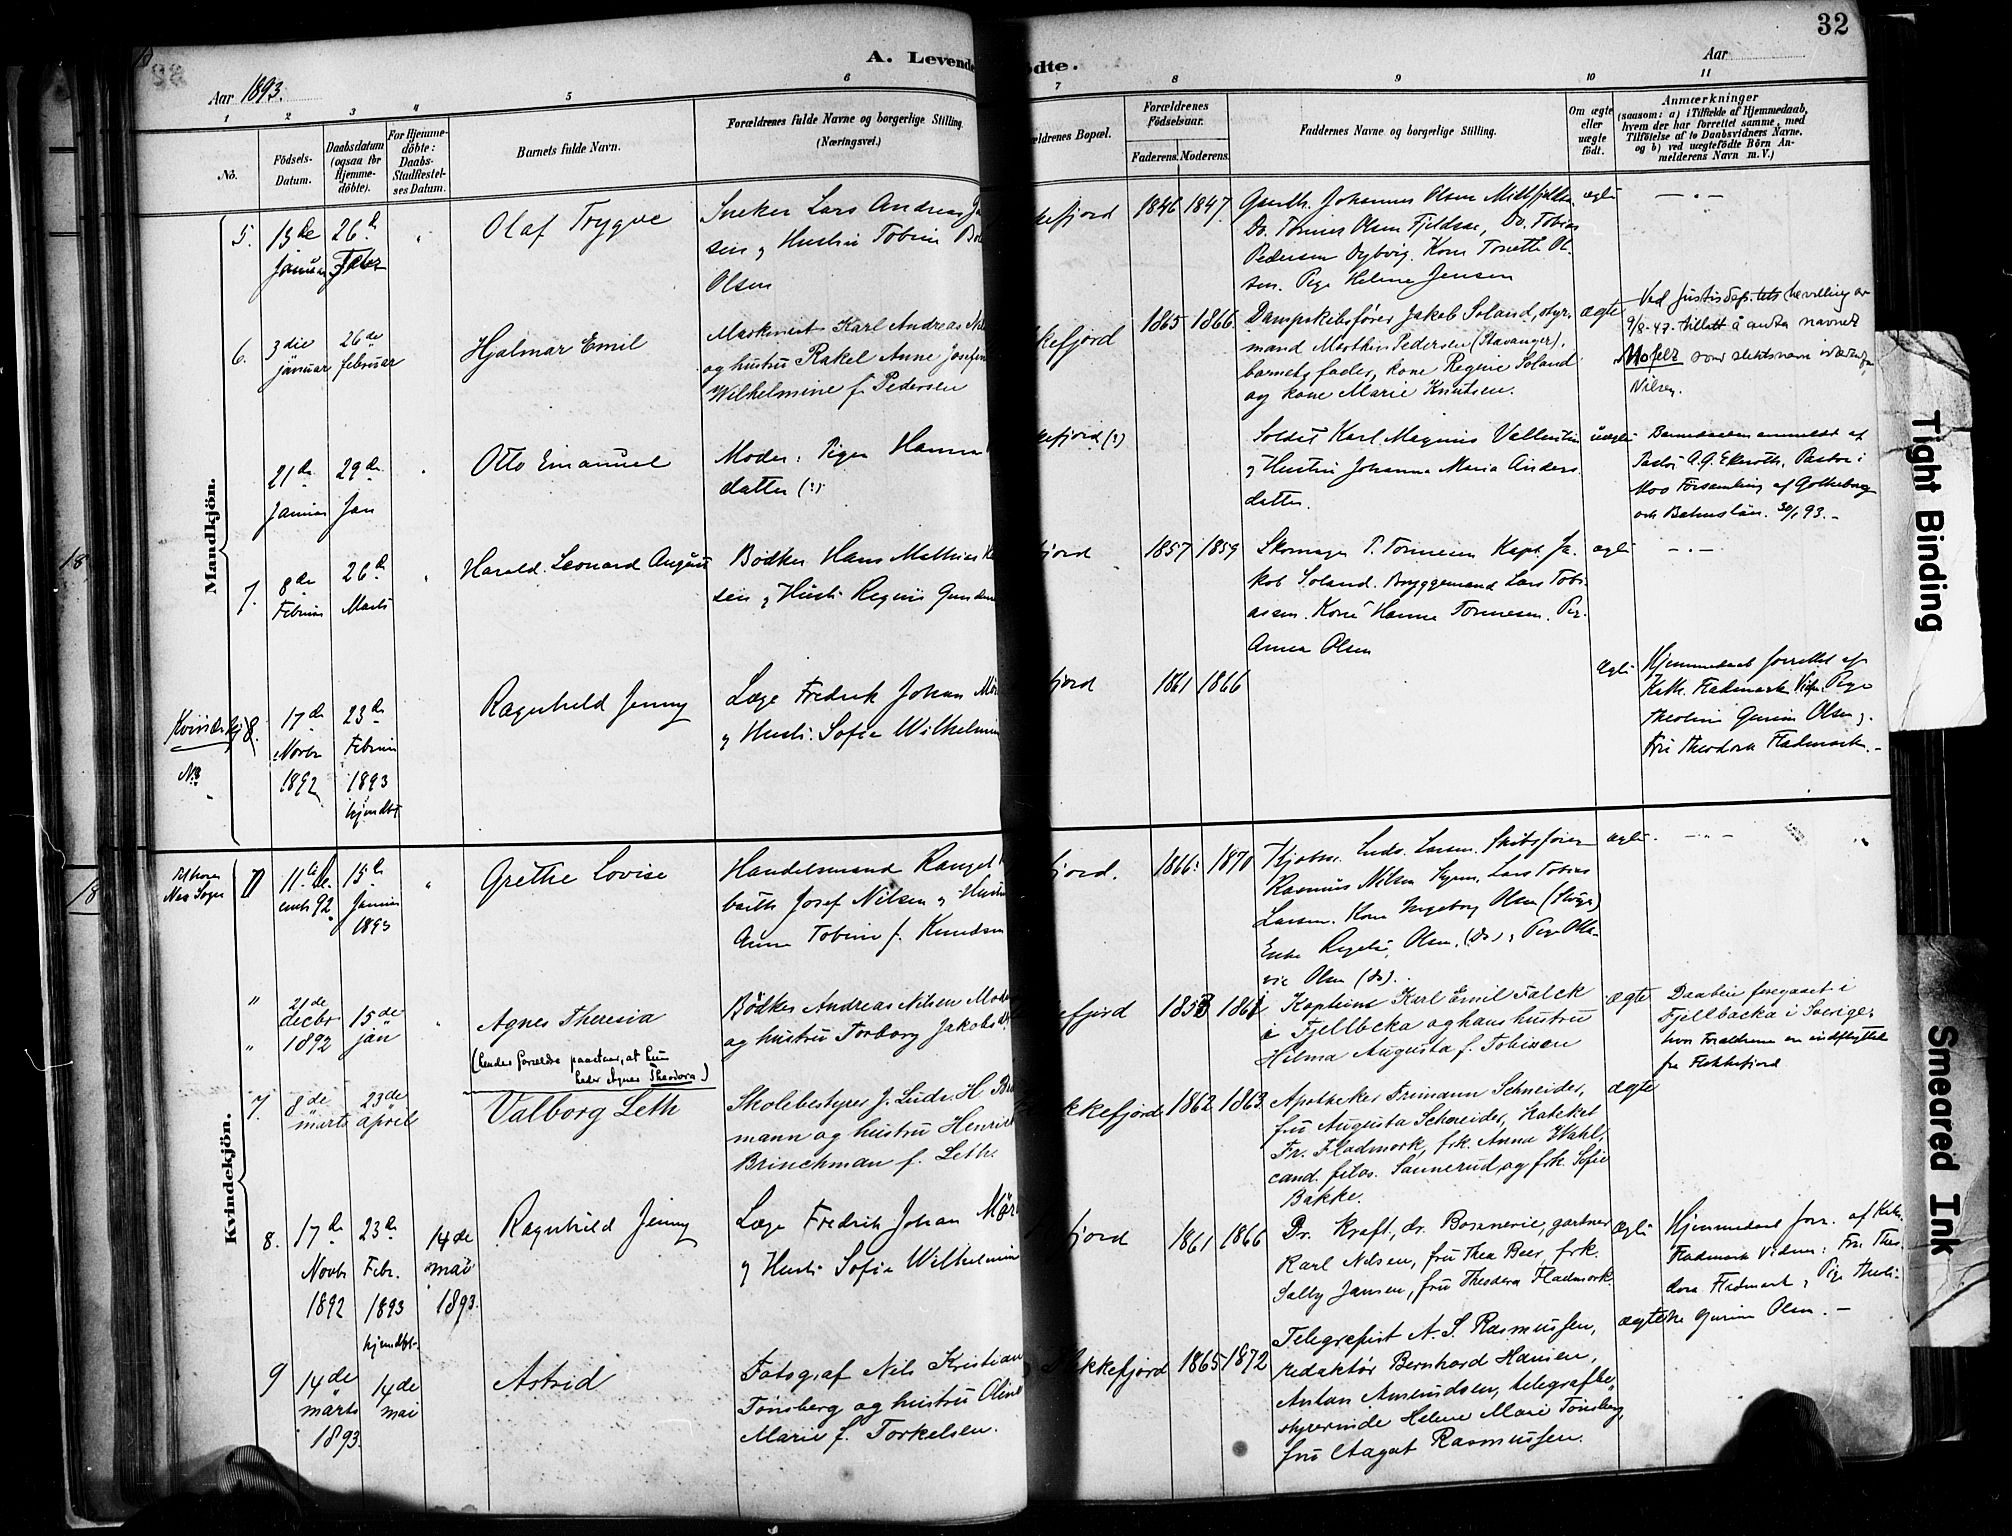 32
A. Levende
ødte.
Aar 1893.
Aar
1 2 3 4 5 6 7 8 9 10 11
No.
Födsels-
Datum.
Daabsdatum
(ogsaa for
Hjemme-
döbte).
For Hjemme-
döbte:
Daabs-
Stadfæstel-
ses Datum.
Barnets fulde Navn.
Forældrenes fulde Navne og borgerlige Stilling.
(Næringsvei.)
ældrenes Bopæl.
Forældrenes
Födselsaar.
Faderens. Moderens.
Faddernes Navne og borgerlige Stilling.
Om ægte
eller
uægte
födt.
Anmærkninger
(saasom: a) i Tilfælde af Hjemmedaab,
hvem der har forrettet samme, med
Tilföielse af to Daabsvidners Navne,
og b) ved uægtefödte Börn An-
melderens Navn m. V.)
Mandkjön.
5. 13de
Januar
26de
Febr
Olaf Trygve
Sneker Lars Andreas
sen og Hustru Tobine
Olsen
kefjord
1846 1847
Gaardb. Johannes Olsen
Do. Tönnes Olsen Fjeldsaa, Do. Tobias
Pedersen Dybvig. Kone Tonette Ol-
sen. Pige Helene Jensen
ægte
6. 3die
januar
26de
februar
Hjalmar Emil
Maskinist Karl Andreas
og hustru Rakel Anne Josefine
Wilhelmine f. Pedersen
kefjord
1865 1866
Dampskibsfører Jakob Soland, styr-
mand Marthin Pedersen (Stavanger),
barnets fader, kone Regine Soland
og kone Marie Knutsen.
ægte
Ved Justisdep.tets bevilling av
9/8-47. tillatt å anta navnet
Mofelt som slektsnavn istedenfor
Nilsen.
21de
Januar
29de
Jan
Otto Emanuel
Moder: Pigen Hanna
datter (?)
kefjord (?)
Soldat Karl Magnus Vallentin
og Hustru Johanna Maria Anders-
datter.
uægte
Barnedaaben anmeldt af
Pastor A.G. Ekeroth, Pastor i
Mos Församling af Gotheborg
och Bahuslän. 30/1 93.-
7. 8de
Februar
26de
Marts
Harald Leonard August
Bödker Hans Mathias
sen og Hustru Regine
jord
1857 1859
Skomager T. Tönnesen Kapt. Ja-
kob Soland. Bryggemand Lars Tobi-
assen. Kone Hanne Tönnesen. Pige
Anna Olsen
ægte
Kvindekj
No
8. 17de
Novbr
1892
23de
Februar
1893
hjemdbt
Ragnhild Jenny
Læge Fredrik Johan
og Hustru Sofie Wilhelmine
jord
1861 1866
ægte
Hjemmedaab forrettet af
Kath. Fladmark Vidne. Pige
Theoline Gurine Olsen og
Fru Theodora Fladmark.-
Kvindekjön.
Nes Sogn
11te De-
cemb 92
15de
Januar
1893
Grethe Lovise
Handelsmand Rangel
barth Josef Nilsen og Hustru
Anna Tobine f. Knudsen
jord.
1866 1870
Kjøbm. Ludv. Larsen. Skibsfører
Rasmus Nilsen Styrm. Lars Tobias
Larsen. Kone Ingeborg Olsen
Enke Regeline Olsen, (do) og Pige Otta-
vie Olsen (do).
ægte.
"
"
21de
decbr
1892
15de
jan
Agnes Theresia
(hendes forældre paastaar, at hun
heder Agnes Theodora)
Bødker Andreas Nilsen
og hustru Torborg Jakobsdtr
efjord
1853 1861
Kaptein Karl Emil Falck
i Fjellbcka og hans hustru
Hilma Augusta f. Tobisson
ægte
Daaben foregaaet i
Fjellbacka i Sverige,
hvor Forældrene er indflyttet
fra Flekkefjord
7. 8de
marts
23de
april
Valborg Leth
Skolebestyrer J. Luder H.
mann og hustru
Brinchman f. Leth
kkefjord
1862 1863
Apotheker Frimann Schneider,
fru Augusta Schneider, Kateket
Fr. Fladmork, frk. Anna Wahl,
cand. filos. Sannerud, og frk. Sofie
Bakke.
ægte
8. 17de
Novbr
1892
23de
Febr.
1893
hjemdbt.
14de
mai
1893.
Ragnhild Jenny
Læge Fredrik Johan
og Hustru Sofie Wilhelmine
fjord
1861 1866
Dr. Kraft, dr. Bonnevie, gartner
Karl Nilsen, fru Thea Beer, frk.
Sally Jansen, fru Theodora Fladmork
ægte
Hjemmedaab forr. af Kat.
Fladmark Vidner: Fru Theo-
dora Fladmark og Pige Theoli-
ne Gurine Olsen.-
9 14de
marts
1893.
14de
mai
Astrid
Fotograf Nils Kristian
Tønsberg og hustru Oline
Marie f. Torkelsen.
kkefjord
1865 1872
Telegrafist A. S. Rasmussen,
redaktør Bernhard Hansen,
Anton Amundsen, telegrafbe-
styrerinde Helene Marie Tønsberg,
fru Aagot Rasmussen.
ægte
Tight Binding
Smeared Ink